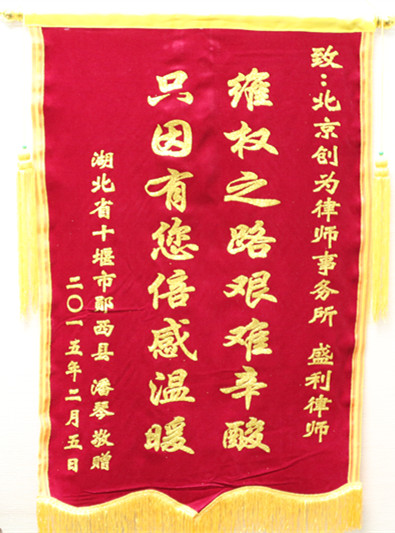 致：北京创为律师事务所 盛利律师
维权之路艰难辛酸
只因有您倍感温暖
湖北省十堰市郧西县 潘琴 敬赠
二〇一五年二月五日